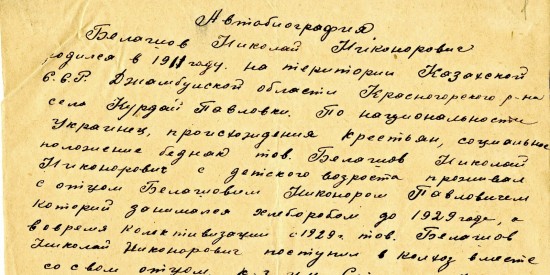 Автобиография
Белашов Николай Никонорович
родился в 1911 году. на територии Казахской
С.С.Р. Джамбулской области Красногорского р-на
село Курдай Павловки. По национальности
Украинец, происхождения крестьян, социальное
положение бедняк тов. Белашов Николай
Никонорович с детского возроста проживал
с отцом Белашовим Никонором Павловичем
который занимался хлеборобом до 1929 года, а
вовремя колективизации с 1929 г. тов. Белашов
Николай Никонорович поступил в колхоз вместе
со свом отцом,